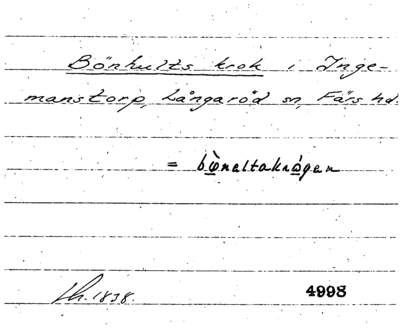 Bönhults krok i Inge-
manstorp, Långaröd sn, Färs hd.
= bø̀neltakrógen
Lh. 1838.
4998